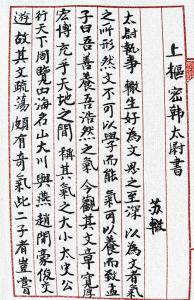 上樞密韓太尉書
蘇轍
太尉執事轍生好為文思之至深以為文者氣
之所形然文不可以學而能氣可以養而致孟
子曰吾善養吾浩然之氣今觀其文章寬厚
宏博充乎天地之間稱其氣之大小太史公
行天下周覽四海名山大川與燕趙間豪俊交
遊故其文疏蕩頗有奇氣此二子者豈嘗